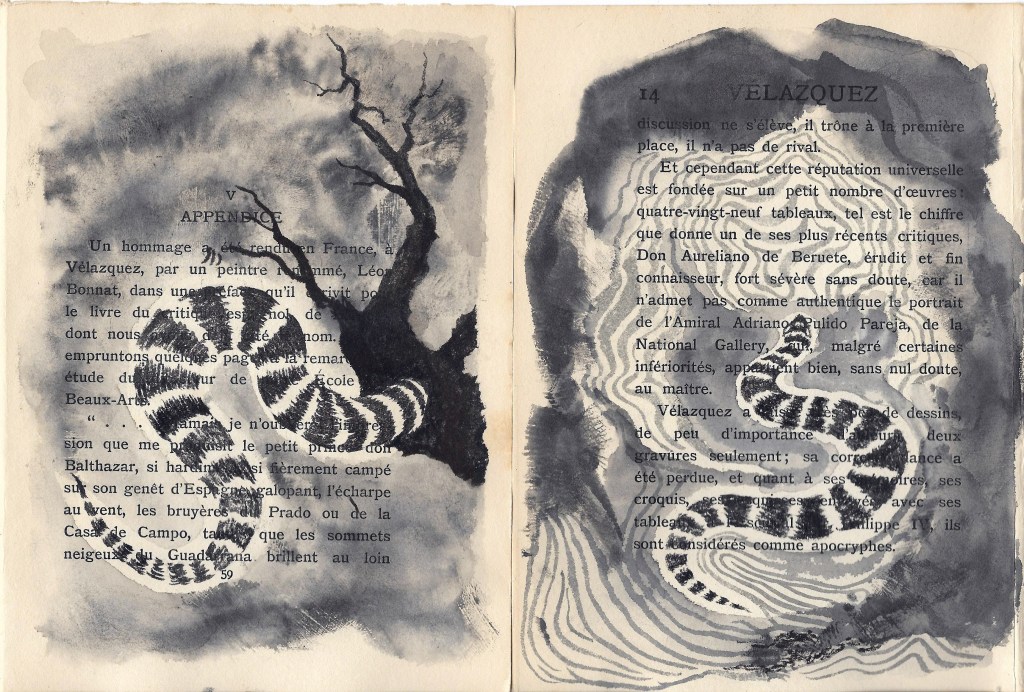 V
APPENDICE
Un hommage a été rendu en France, à
Vélazquez, par un peintre renommé, Léon
Bonnat, dans une préface qu'il écrivit pour
le livre du critique espagnol de
dont nous nom.
empruntons quelques pages à la remar
étude du de École
Beaux-Arts.
" . . Jamais je n'oublierai
sion que me produisit le petit prince don
Balthazar, si hardiment, si fièrement campé
sur son genêt d'Espagne, galopant, l'écharpe
au vent, les bruyères du Prado ou de la
Casa de Campo, tandis que les sommets
neigeux du Guadarrama brillent au loin
59
14 VELAZQUEZ
discussion ne s'élève, il trône à la première
place, il n'a pas de rival.
Et cependant cette réputation universelle
est fondée sur un petit nombre d'œuvres:
quatre-vingt-neuf tableaux, tel est le chiffre
que donne un de ses plus récents critiques,
Don Aureliano de Beruete, érudit et fin
connaisseur, fort sévère sans doute, car il
n'admet pas comme authentique le portrait
de l'Amiral Adriano Pulido Pareja, de la
National Gallery, qui, malgré certaines
infériorités, appartient bien, sans nul doute,
au maître.
Vélazquez a laissé très peu de dessins,
de peu d'importance d'ailleurs, deux
gravures seulement; sa correspondance a
été perdue, et quant à ses mémoires, ses
croquis, ses esquisses envoyés avec ses
tableaux à Philippe IV, ils
sont considérés comme apocryphes.